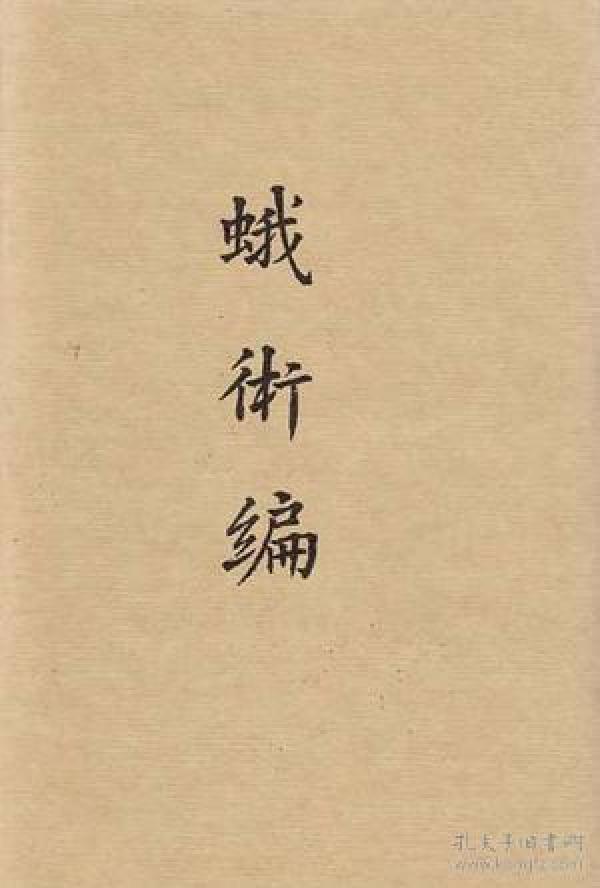 蛾術編
孔夫子旧书网
www.kongfz.com